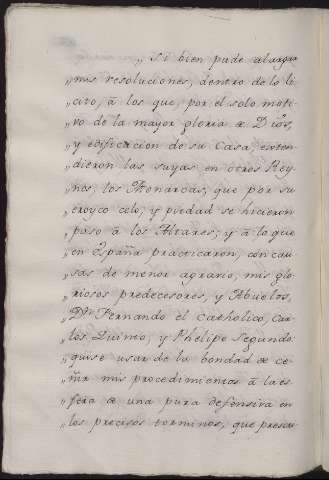 „ Si bien pude alargar
„ mis resoluciones, dentro de lo li
„ cito, à los que, por el solo moti
„ vo de la mayor gloria de Dios,
„ y edificacion de su Casa, exten
„ dieron las suyas en otros Rey
„ nos, los Monarcas, que por su
„ eroyco celo, y piedad se hicieron
„ poso à los Altares; y à lo que
„ en España practicaron, con cau
„ sas de menor agravio, mis glo
„ riosos predecesores, y Abuelos,
„ Dn. Fernando el Catholico, Car
„ los Quinto, y Phelipe Segundo:
„ quise usar de la bondad de ce
„ ñir mis procedimientos à la es
„ fera de una pura defensiva en
„ los precisos terminos, que prescri